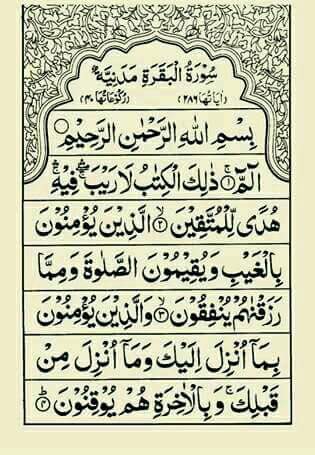 سُوْرَةُ الْبَقَرَةِ مَدَنِيَّةٌ
(اٰيَاتُهَا ٢٨٦) (رُكُوْعَاتُهَا ٤٠)
بِسْمِ اللّٰهِ الرَّحْمٰنِ الرَّحِيْمِ
الٓمّٓ ۚ﴿١﴾ ذٰلِكَ الْكِتٰبُ لَا رَيْبَ ۛۖۚ فِيْهِ ۛۚ
هُدًى لِّلْمُتَّقِيْنَ ۙ﴿٢﴾ الَّذِيْنَ يُؤْمِنُوْنَ
بِالْغَيْبِ وَيُقِيْمُوْنَ الصَّلٰوةَ وَمِمَّا
رَزَقْنٰهُمْ يُنْفِقُوْنَ ۙ﴿٣﴾ وَالَّذِيْنَ يُؤْمِنُوْنَ
بِمَآ اُنْزِلَ اِلَيْكَ وَمَآ اُنْزِلَ مِنْ
قَبْلِكَ ۚ وَبِالْاٰخِرَةِ هُمْ يُوْقِنُوْنَ ؕ﴿٤﴾